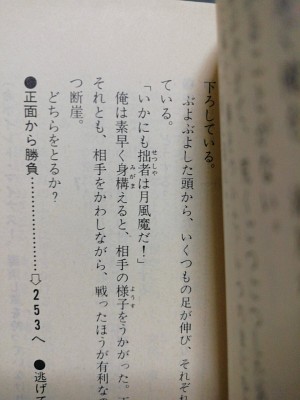 下ろしている。
ぶよぶよした頭から、いくつもの足が伸び、それぞれ
ている。
「いかにも拙者は月風魔だ！」
俺は素早く身構えると、相手の様子をうかがった。
それとも、相手をかわしながら、戦ったほうが有利な
つ断崖。
どちらをとるか？
●正面から勝負…………⇨253へ
●逃げ